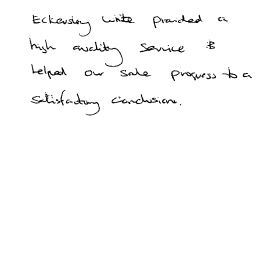 Eckersley White provided a
high quality service &
helped our sale progress to a
satisfactory conclusion.